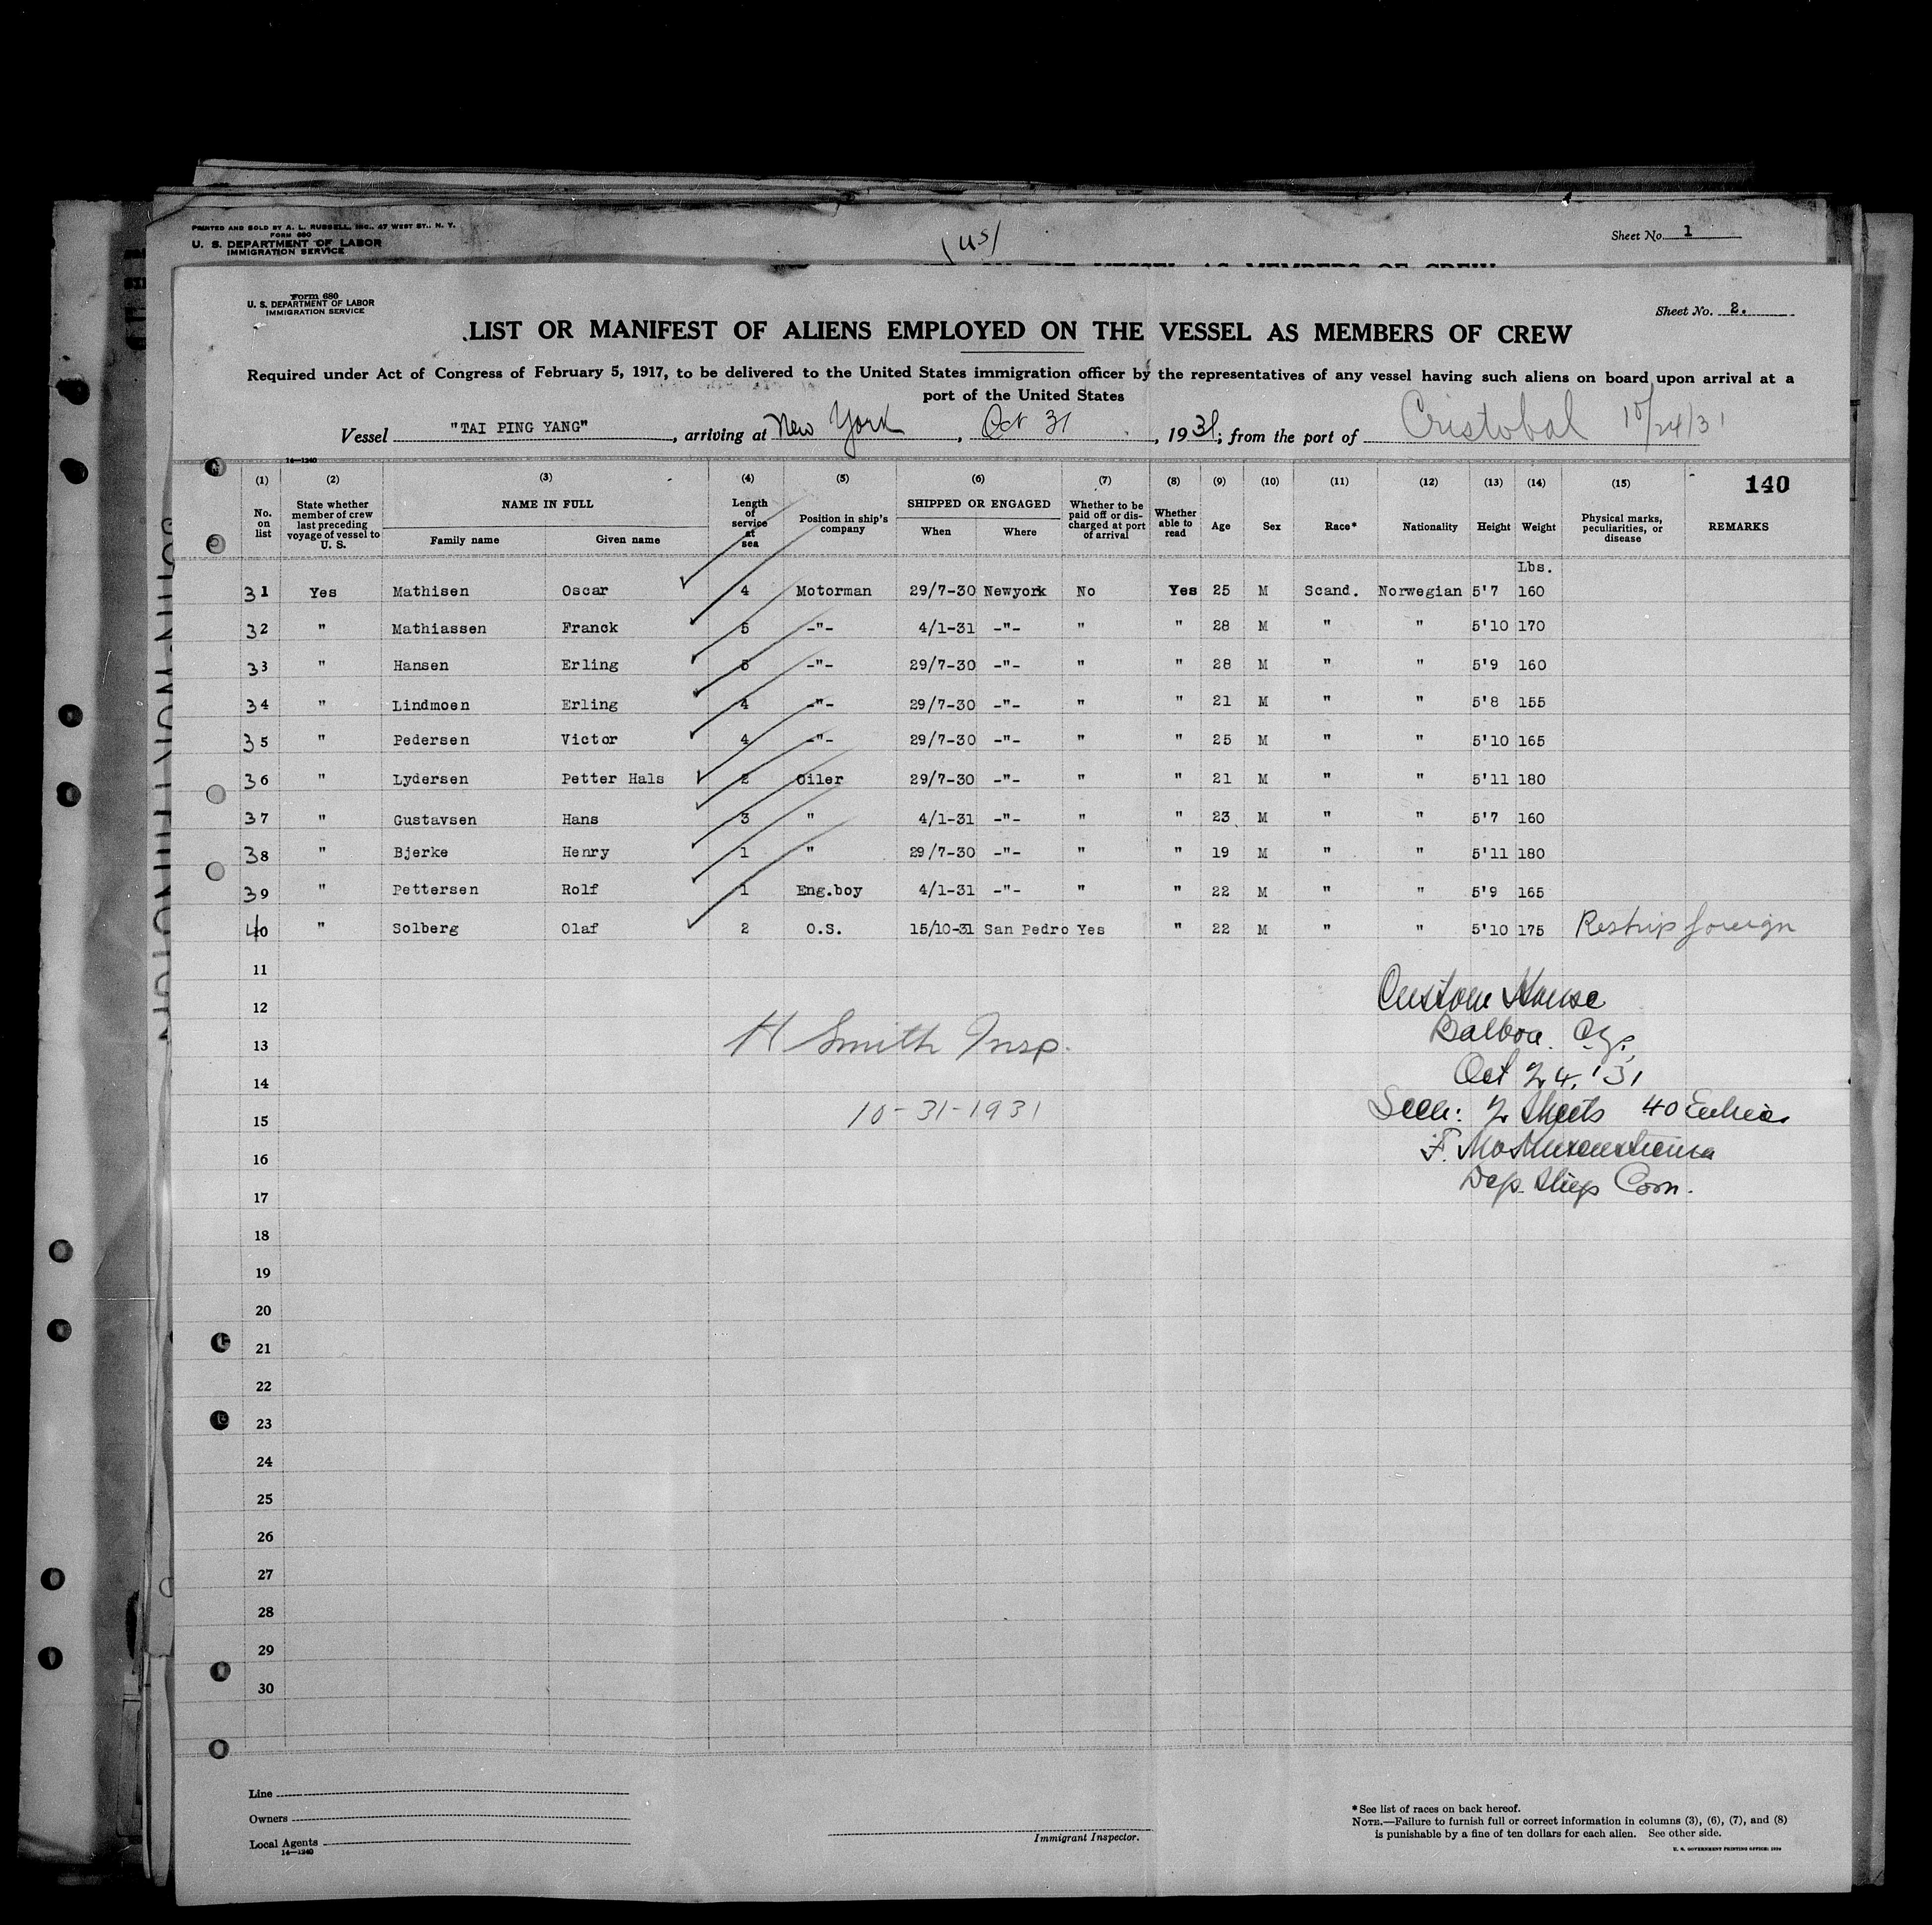 PRINTED AND SOLD BY A. L. RUSSELL, INC., 47 WEST ST., N. Y.
FORM 680
U. S. DEPARTMENT OF LABOR
IMMIGRATION SERVICE
(us)
Sheet No. 1
Form 680
U. S. DEPARTMENT OF LABOR
IMMIGRATION SERVICE
Sheet No. 2.
LIST OR MANIFEST OF ALIENS EMPLOYED ON THE VESSEL AS MEMBERS OF CREW
Required under Act of Congress of February 5, 1917, to be delivered to the United States immigration officer by the representatives of any vessel having such aliens on board upon arrival at a
port of the United States
Vessel "TAI PING YANG", arriving at New York, Oct 31, 1931; from the port of Cristobal 10/24/31
14—1240
(1) (2) (3) (4) (5) (6) (7) (8) (9) (10) (11) (12) (13) (14) (15) 140
No. on list State whether member of crew last preceding voyage of vessel to U. S. NAME IN FULL Family name Given name Length of service at sea Position in ship's company SHIPPED OR ENGAGED When Where Whether to be paid off or discharged at port of arrival Whether able to read Age Sex Race* Nationality Height Weight Physical marks, peculiarities, or disease REMARKS
Lbs.
31 Yes Mathisen Oscar 4 Motorman 29/7-30 Newyork No Yes 25 M Scand. Norwegian 5'7 160
32 " Mathiassen Franck 5 -"- 4/1-31 -"- " " 28 M " " 5'10 170
33 " Hansen Erling 5 -"- 29/7-30 -"- " " 28 M " " 5'9 160
34 " Lindmoen Erling 4 -"- 29/7-30 -"- " " 21 M " " 5'8 155
35 " Pedersen Victor 4 -"- 29/7-30 -"- " " 25 M " " 5'10 165
36 " Lydersen Petter Hals 2 Oiler 29/7-30 -"- " " 21 M " " 5'11 180
37 " Gustavsen Hans 3 " 4/1-31 -"- " " 23 M " " 5'7 160
38 " Bjerke Henry 1 " 29/7-30 -"- " " 19 M " " 5'11 180
39 " Pettersen Rolf 1 Eng.boy 4/1-31 -"- " " 22 M " " 5'9 165
40 " Solberg Olaf 2 O.S. 15/10-31 San Pedro Yes " 22 M " " 5'10 175 Reship foreign
11
12 Custom House
13 H Smith Insp. Balboa. C.Z.
14 Oct 24, '31
15 10-31-1931 Seen: 2 Sheets 40 Entries
16
17 Dep. Ship Com.
18
19
20
21
22
23
24
25
26
27
28
29
30
Line
Owners
Local Agents
14—1240
Immigrant Inspector.
*See list of races on back hereof.
NOTE.—Failure to furnish full or correct information in columns (3), (6), (7), and (8)
is punishable by a fine of ten dollars for each alien. See other side.
U. S. GOVERNMENT PRINTING OFFICE: 1930